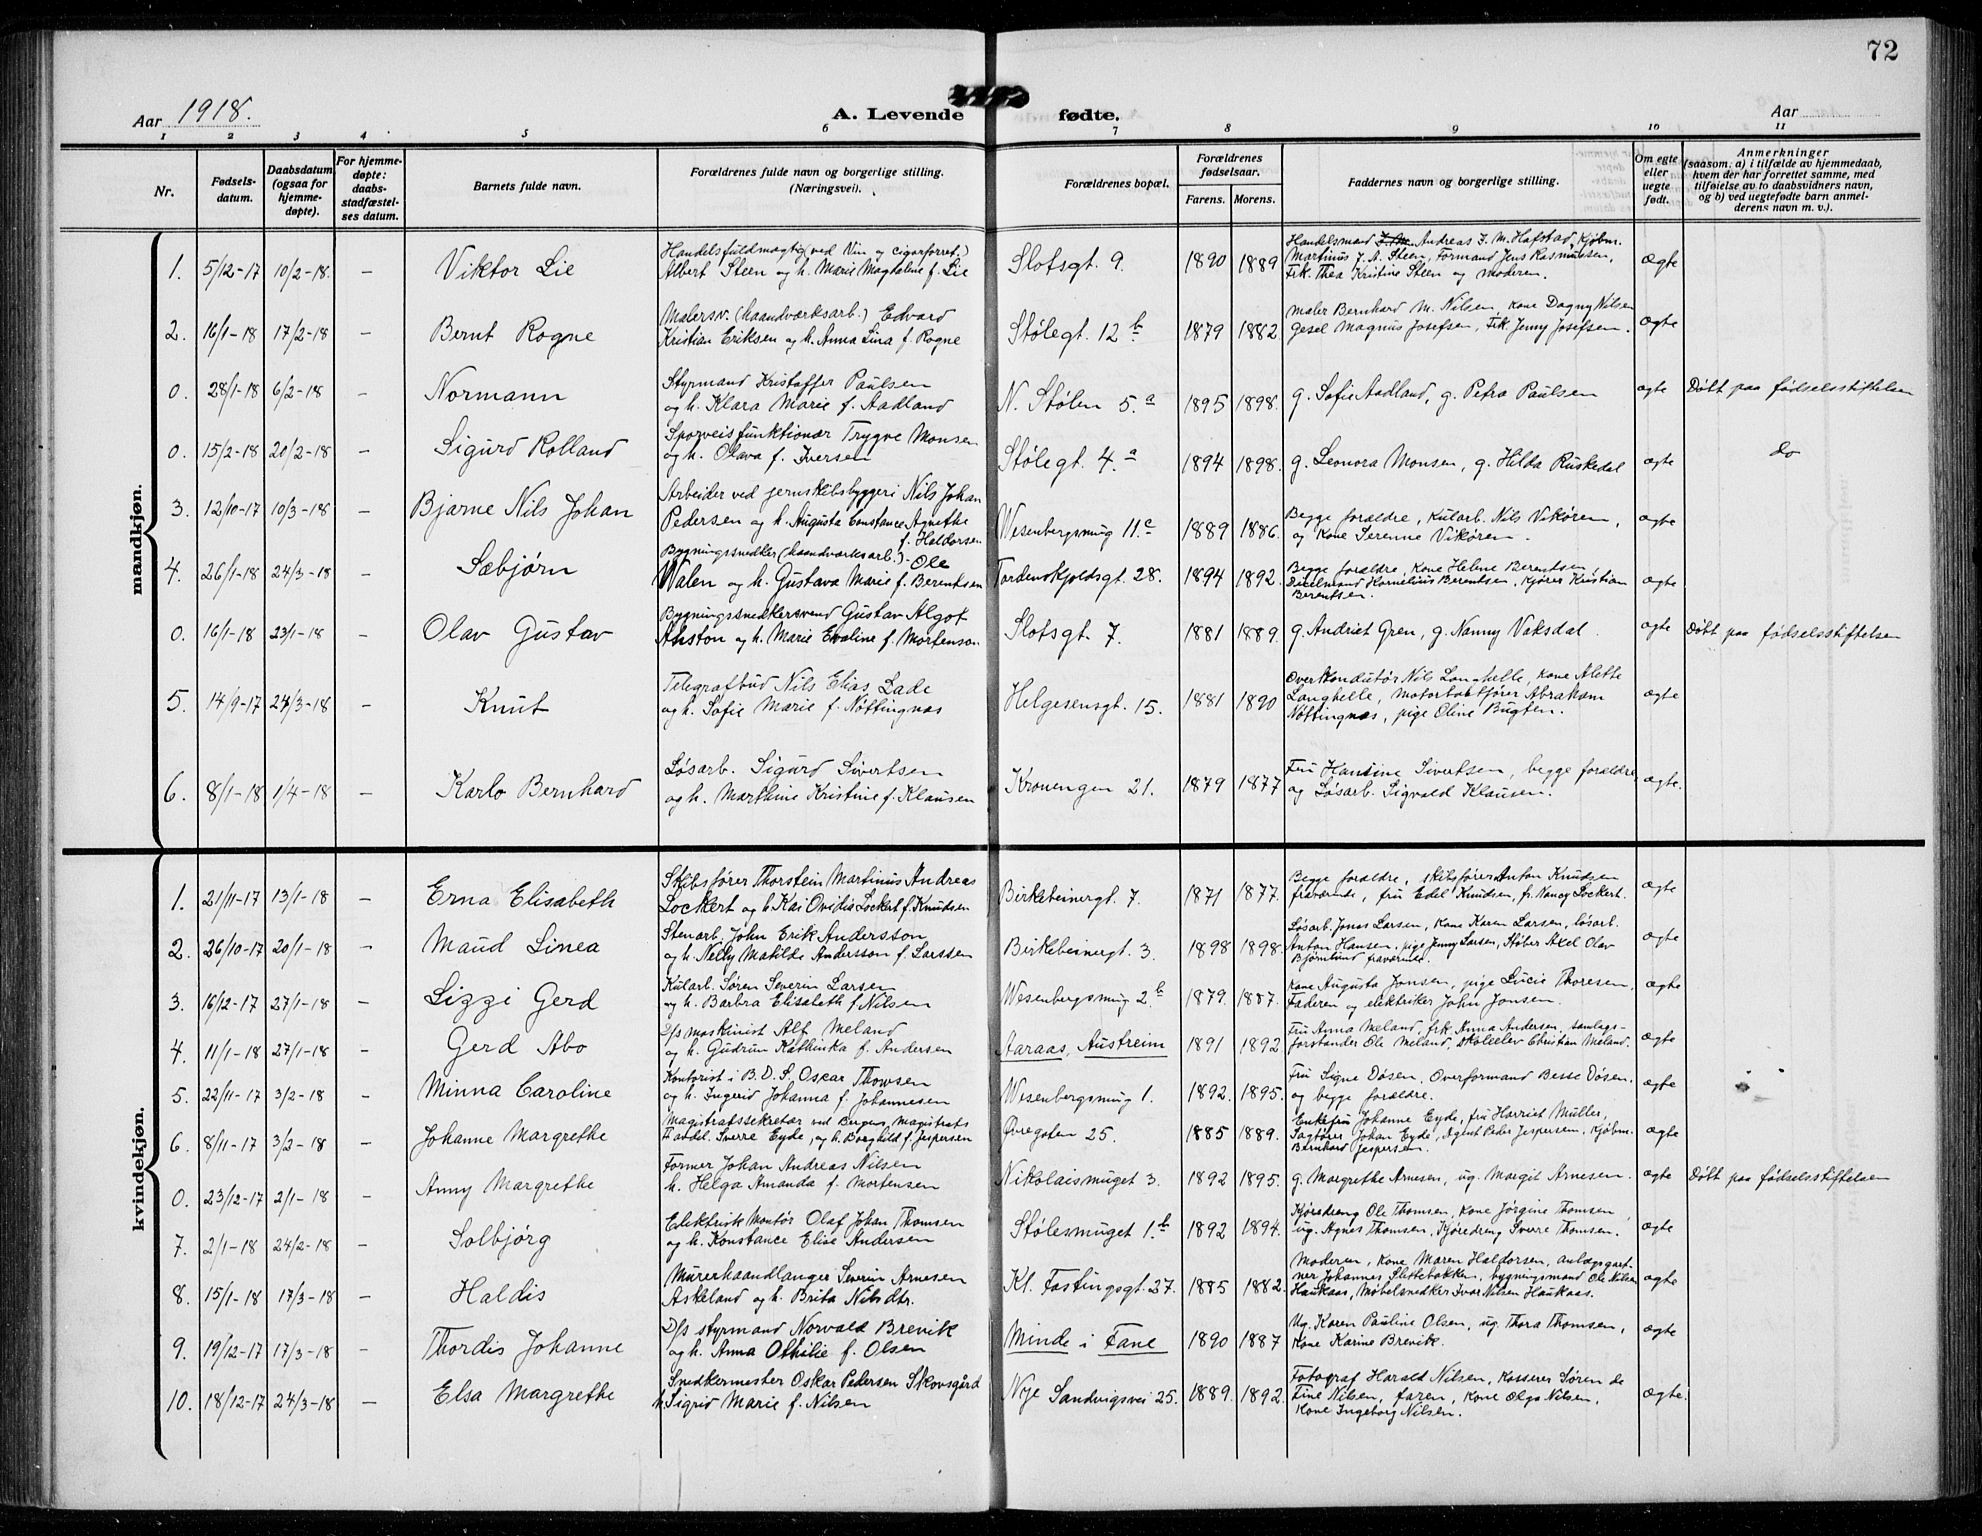 72
Aar 1918.
A. Levende fødte.
Aar
1 2 3 4 5 6 7 8 9 10 11
Nr.
Fødselsdatum.
Daabsdatum (ogsaa for hjemmedøpte).
For hjemmedøpte: daabsstadfæstelses datum.
Barnets fulde navn.
Forældrenes fulde navn og borgerlige stilling. (Næringsvei).
Forældrenes bopæl.
Forældrenes fødselsaar.
Farens. Morens.
Faddernes navn og borgerlige stilling.
Om egte eller uegte født.
Anmerkninger
(saasom: a) i tilfælde av hjemmedaab,
hvem der har forrettet samme, med
tilføielse av to daabsvidners navn,
og b) ved uegtefødte barn anmelderens navn m. v.).
mandkjøn.
1. 5/12-17 10/2-18. – Viktor Lie
Handelsfuldmægtig (ved Vin og cigarforret.)
Albert Steen og h. Marie Magdalene f. Lie
Slotsgt. 9. 1890 1889
Handelsmand Andreas J. M. Hafstad, Kjøbm.
Martinus J. A. Steen, Formand Jens Rasmussen,
Frk. Thea Kristine Steen og moderen.
ægte
2. 16/1-18 17/2-18 – Bernt Rogne
Malersv. (haandværksarb.) Edvard
Kristian Eriksen og h. Anna Lina f. Rogne
Stølegt. 12 b 1879 1882
maler Bernhard M. Nilsen, kone Dagny Nilsen
gesel Magnus Josefsen, Frk. Jenny Josefsen.
ægte
0. 28/1-18 6/2-18 – Normann
Styrmand Kristoffer Paulsen
og h. Klara Marie f. Aadland
N. Stølen 5. a 1895 1898.
g. Sofie Aadland, g. Petra Paulsen
ægte Døbt paa fødselsstiftelsen
0. 15/2-18 20/2-18 – Sigurd Rolland
Sporveisfunktionær Trygve Monsen
og h. Olava f. Iversen
Stølegt. 4. a 1894 1898.
g. Leonora Monsen, g. Hilda Ruskedal
ægte do
3. 12/10-17 10/3-18 – Bjarne Nils Johan
Arbeider ved jernskibsbyggeri Nils Johan
Pedersen og h. Augusta Constance Agnethe
f. Haldorsen
Wesenbergsmug 11 c 1889 1886.
Begge forældre, Kularb. Nils Vikøren,
og Kone Serenne Vikøren.
ægte
4. 26/1-18 24/3-18 – Sæbjørn
Bygningssnedker (haandværksarb.) Ole
Walen og h. Gustava Marie f. Berentsen
Tordenskjoldsgt. 28. 1894 1892.
Begge forældre, Kone Helene Berentsen
Kornelius Berentsen, kjører Kristian
Berentsen.
ægte
0. 16/1-18 23/1-18 – Olav Gustav
Bygningssnedkersvend Gustav Algot
Ahston og h. Marie Evaline f. Mortenson
Slotsgt. 7. 1881 1889.
g. Andriet Gren, g. Nanny Vaksdal.
ægte Døbt paa fødselsstiftelsen
5. 14/9-17 24/3-18 – Knut
Telegrafbud Nils Elias Lade
og h. Sofie Marie f. Nøttingnæs
Helgesensgt. 15. 1881 1890
Overkonduktør Nils Langhelle, kone Alette
Langhelle, motorbaatfører Abraham
Nøttingnæs, pige Oline Bugten.
ægte
6. 8/1-18 1/4-18 – Karlo Bernhard
Løsarb. Sigurd Sivertsen
og h. Marthine Kristine f. Klausen
Kronengen 21. 1879 1877
Fru Hansine Sivertsen, begge forældre
og Løsarb. Sigvald Klausen.
ægte.
kvindekjøn.
1. 21/11-17 13/1-18 – Erna Elisabeth
Skibsfører Thorstein Martinus Andreas
Lockert og h. Kai Ovidia Lockert f. Knudsen
Birkebeinergt. 7. 1871 1877.
Begge forældre, skibsfører Anton Knudsen
fraværende, fru Edel Knudsen, fr. Nancy Lockert.
ægte
2. 26/10-17 20/1-18 – Maud Linea
Stenarb. John Erik Andersson
og h. Nelly Matilde Andersson f. Larssen
Birkebeinergt. 3. 1898 1898.
Løsarb. Jonas Larsen, Kone Karen Larsen, løsarb.
Anton Hansen, pige Jenny Larsen, støber Axel Olav
Bjørnlund fraværende.
ægte
3. 16/12-17 27/1-18 – Lizzi Gerd
Kularb. Søren Severin Larsen
og h. Barbra Elisabeth f. Nilsen
Wesenbergsmug 2 b 1879. 1887.
Kone Augusta Jonsen, pige Lucie Thoresen,
Faderen og elektriker John Jonsen.
ægte
4. 11/1-18 27/1-18 – Gerd Abo
D/s maskinist Alf Meland
og h. Gudrun Kathinka f. Andersen
Aaraas, Austreim 1891 1892
Fru Anna Meland, frk. Anna Andersen, samlags-
forstander Ole Meland, skoleelev Christian Meland.
ægte
5. 22/11-17 3/2-18 – Minna Caroline
Kontorist i B. D. S. Oscar Thowsen
og h. Ingerid Johanna f. Johannesen
Wesenbergsmug 1. 1892. 1895.
Fru Signe Døsen, Overformand Besse Døsen.
og begge forældre.
ægte
6. 8/11-17 3/2-18 – Johanne Margrethe
Magistratssekretær ved Bergens Magistrats
Sverre Eyde, og h. Borghild f. Jespersen
Øvregaten 25. 1885 1889.
Enkefru Johanne Eyde, fru Harriet Müller,
Sagfører Johan Eyde, Agent Peder Jespersen, Kjøbm.
Bernhard Jespersen.
ægte
0. 23/12-17 2/1-18 – Anny Margrethe
Former Johan Andreas Nilsen
h. Helga Amanda f. Mortensen
Nikolaismuget 3. 1892 1895.
g. Margrethe Arnesen, ug. Margit Arnesen.
ægte Døbt paa fødselsstiftelsen
7. 2/1-18 24/2-18 – Solbjørg
Elektrisk Montør Olaf Johan Thomsen
og h. Konstance Elise Andersen
Stølesmuget 1. b 1892 1894.
Kjøredreng Ole Thomsen, Kone Jørgine Thomsen
ug. Agnes Thomsen, Kjøredreng Sverre Thomsen.
ægte
8. 15/1-18 17/3-18 – Haldis
Murerhaandlanger Severin Arnesen
Askeland og h. Brita Nilsdtr.
Kl. Fastingsgt. 27. 1885 1882.
Moderen, Kone Maren Haldorsen, anlægsgart-
ner Johannes Slettebakken, bygningsmand Ole Nilsen
Haukaas, Møbelsnedker Ivar Nilsen Haukaas.
ægte
9. 19/12-17 17/3-18 – Thordis Johanne
D/s styrmand Norvald Brevik
og h. Anna Othilie f. Olsen
Minde i Fane 1890 1887
Ug. Karen Pauline Olsen, ug Thora Thomsen,
Kone Karine Brevik.
ægte
10. 18/12-17 24/3-18 – Elsa Margrethe
Snedkermester Oskar Pedersen Skovsgård
h. Sigrid Marie f. Nilsen
Nye Sandvigsvei 25. 1889. 1892.
Fotograf Harald Nilsen, Kasserer Søren de
Fine Nilsen, faren, Kone Olga Nilsen,
Kone Ingeborg Nilsen.
ægte.